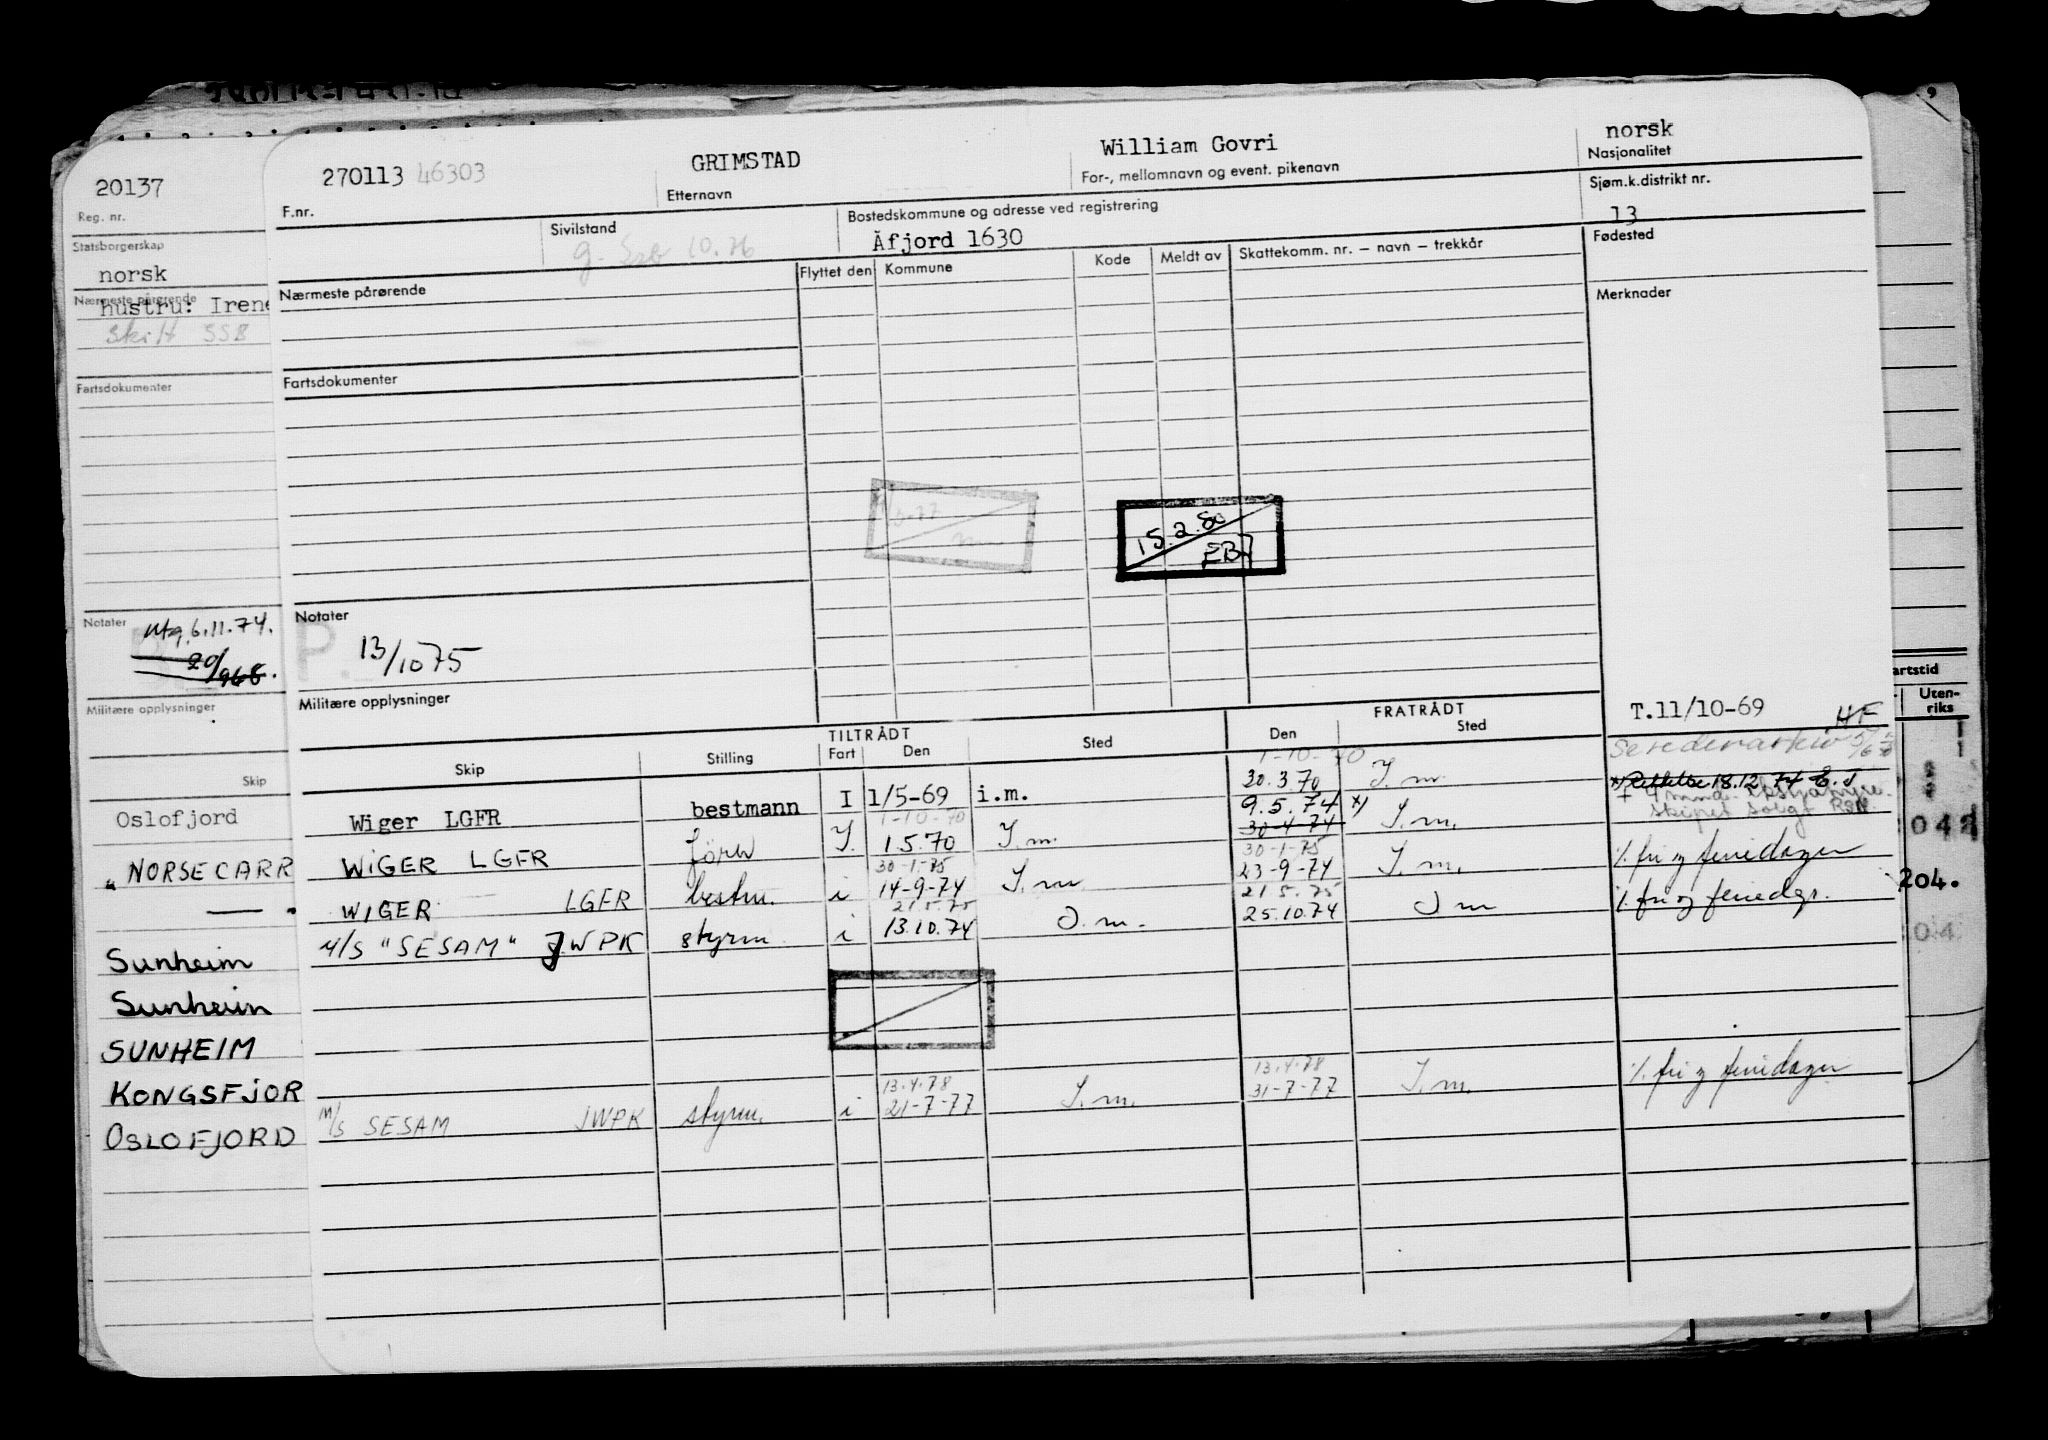 20137
Reg. nr.
Statsborgerskap
norsk
Nærmeste pårørende
hustru: Irene
Skilt SSB
Fartsdokumenter
Notater
Utg. 6.11.74.
20/968.
Militære opplysninger
Skip
Oslofjord
"NORSE CARR
Sunheim
Sunheim
SUNHEIM
KONGSFJOR
OSLOFJORD
270113 46303
F.nr.
GRIMSTAD
Etternavn
William Govri
For-, mellomnavn og event. pikenavn
norsk
Nasjonalitet
Sivilstand
g. 10.76
Bostedskommune og adresse ved registrering
Åfjord 1630
Sjøm.k.distrikt nr.
13
Nærmeste pårørende
Flyttet den Kommune Kode Meldt av Skattekomm. nr. – navn – trekkår
Fødested
Merknader
Fartsdokumenter
15.2.80
EB
Notater
13/1075
P.
Militære opplysninger
T.11/10-69 HF
TILTRÅDT FRATRÅDT
Skip Stilling Fart Den Sted Den Sted
1-10-70
Wiger LGFR bestmann I 1/5-69 i.m. 30.3.70 I.m.
1-10-70 9.5.74 x)
WIGER LGFR førw I. 1.5.70 I.m. 30-4-74 I.m.
skipet solgt
30-1-75 30-1-75
WIGER LGFR bestm. i 14-9-74 I.m. 23-9-74 I.m. ٪. fri og feriedager
21.5.75 21.5.75
M/S "SESAM" JWPK styrm i 13.10.74 I.m. 25.10.74 I m ٪. fri og feriedgr.
13.4.78 13.4.78
M/S SESAM JWPK styrm. i 21-7-77 I.m. 31-7-77 I.m. ٪. fri og feriedager
artstid
Uten-
riks
042
204.
04